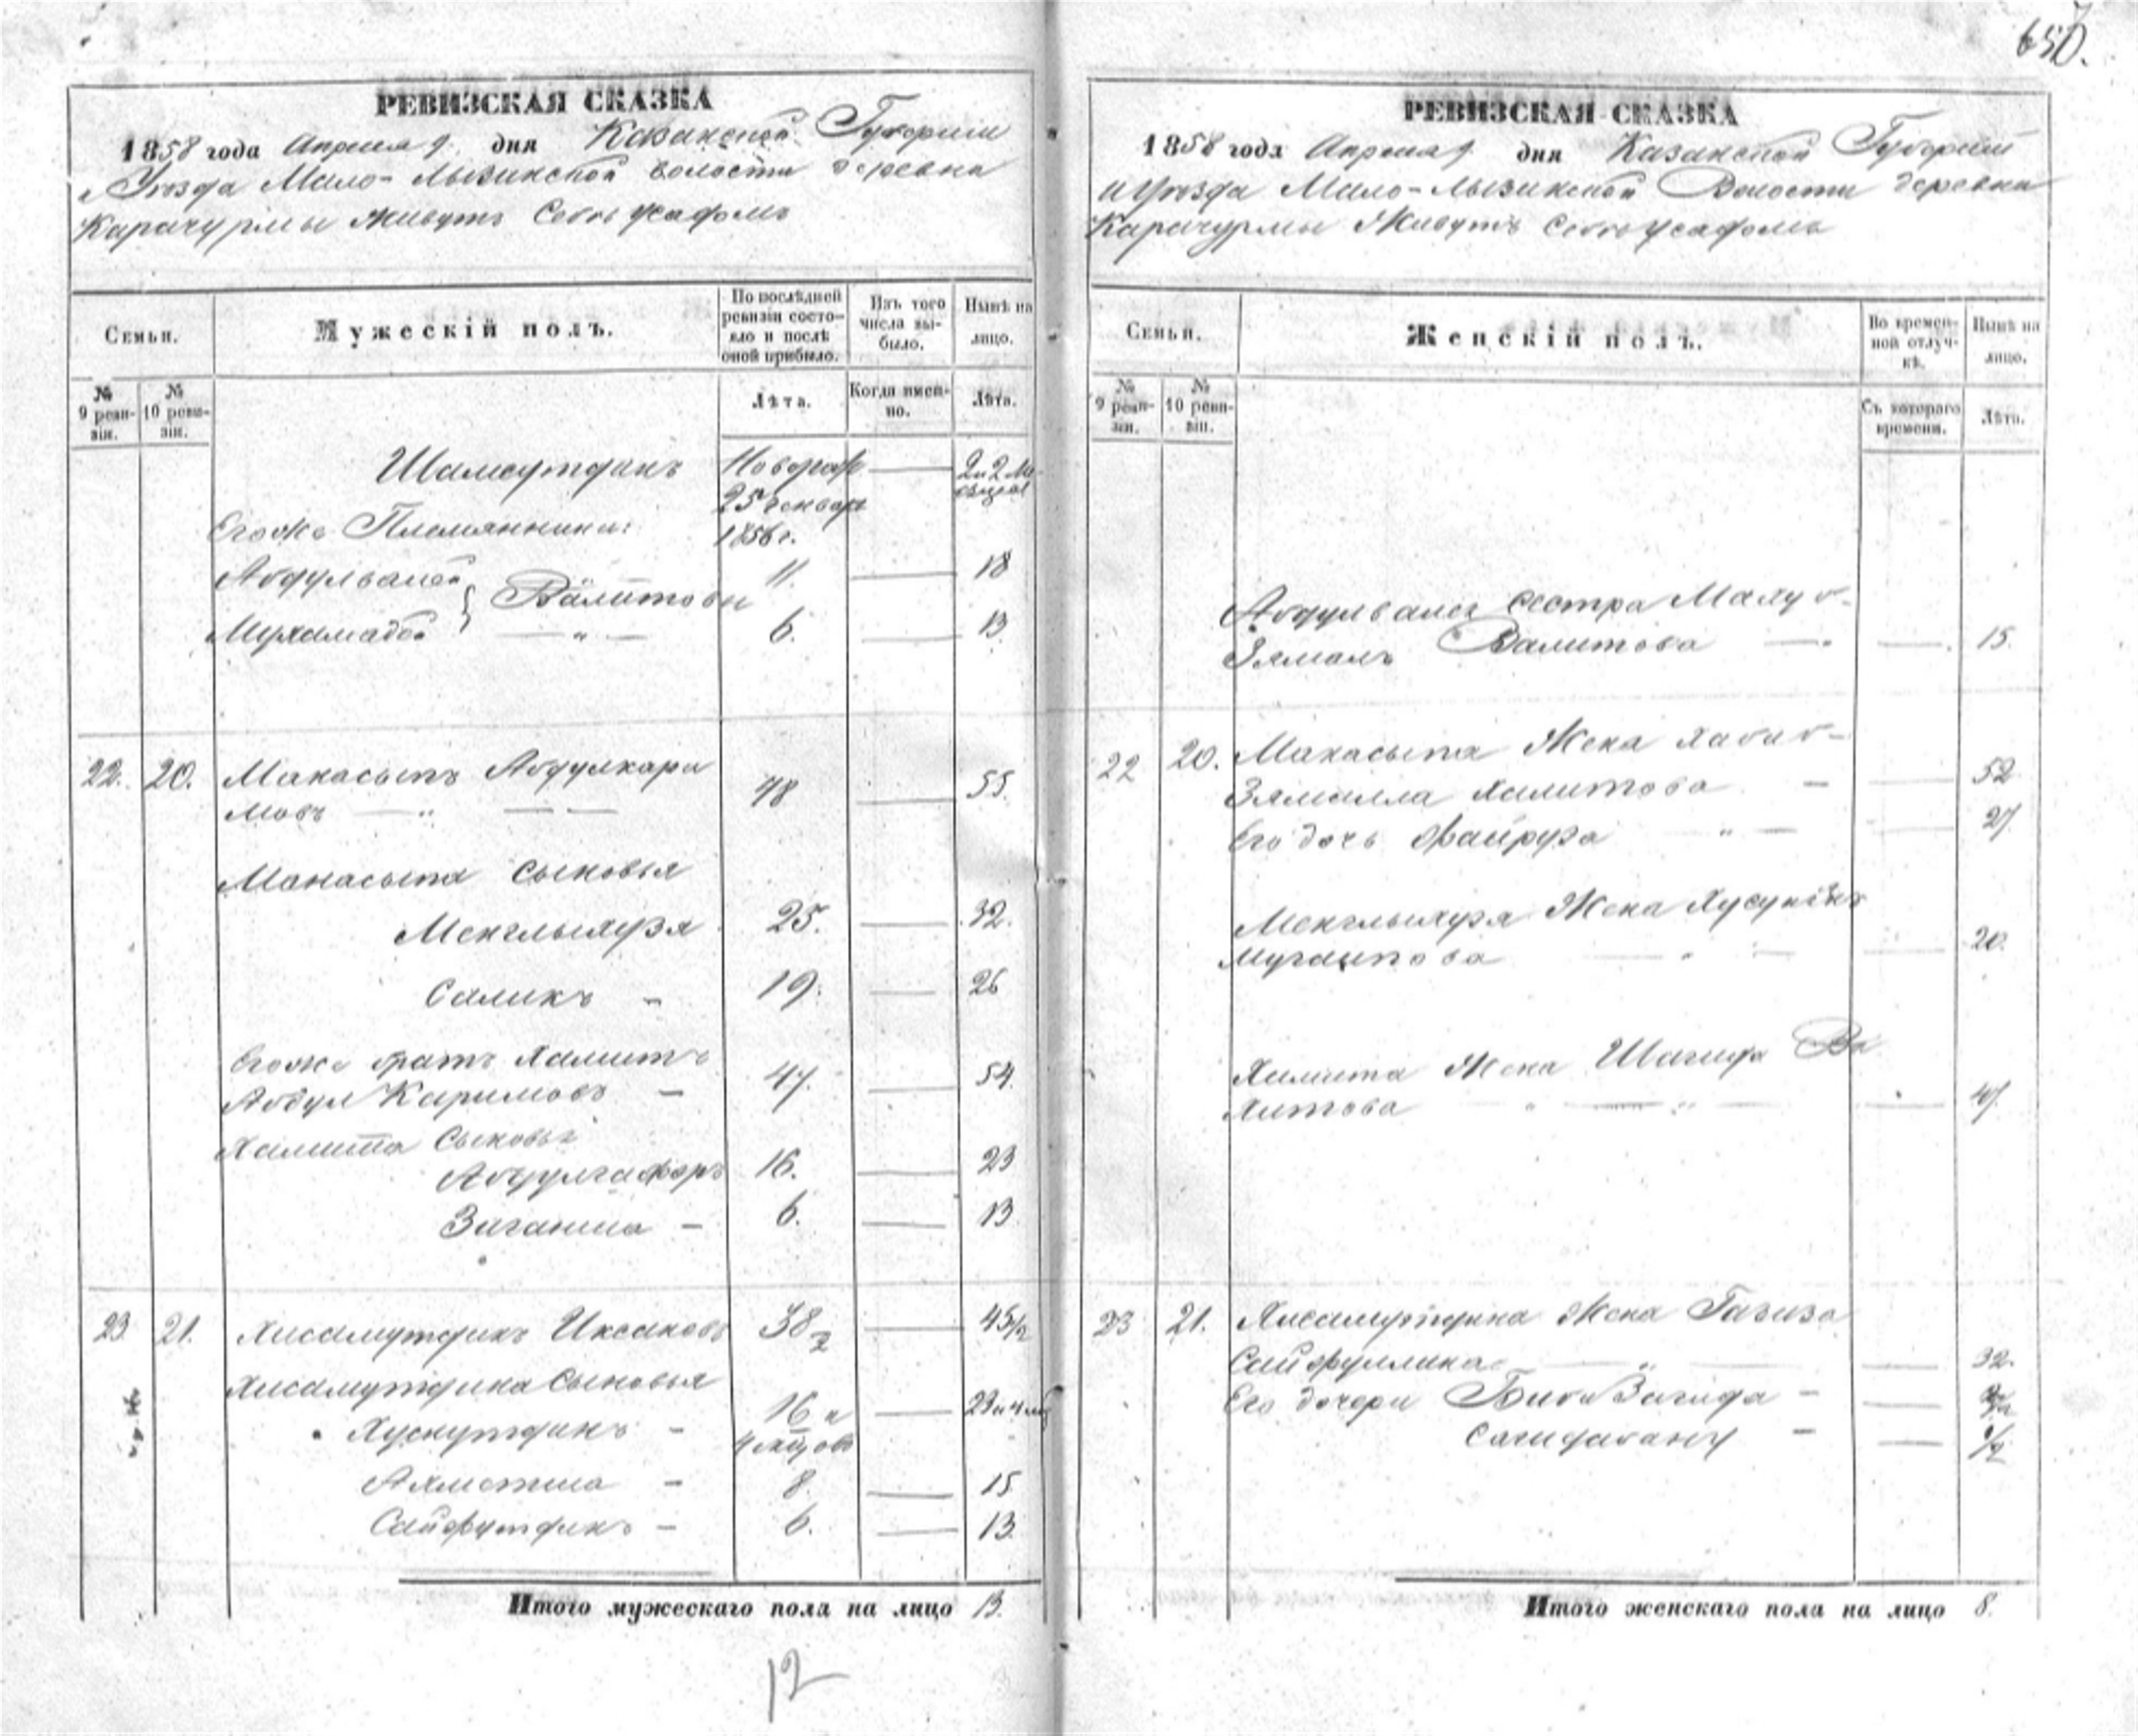 650.
РЕВИЗСКАЯ СКАЗКА
1858 года Апреля 9 дня Казанской Губернии
и Уѣзда Мало-Лызинской волости деревни
Карачурмы живутъ
Семьи.
Мужескій полъ.
По послѣдней ревизіи состояло и послѣ оной прибыло.
Изъ того числа выбыло.
Нынѣ на лицо.
№ 9 ревизіи.
№ 10 ревизіи.
Лѣта.
Когда именно.
Лѣта.
Шамсутдинъ Новорож — 2 и 2 Ме-
25 генваря сяца
Егоже Племянники: 1856 г.
Абдулвалей 11. — 18
} Валитовы
Мухамадей — " — 6. — 13
22. 20. Манасыпъ Абдулкари 48 — 55.
мовъ — " — —
Манасыпа сыновья
Менглыязя 25. — 32.
Саликъ - 19. — 26
Егоже братъ Халитъ
Абдул Каримовъ — 47. — 54.
Халита Сыновья
Абдулгафаръ 16. — 23
Зиганша - 6. — 13
23. 21. Хисамутдинъ Иксановъ 38 1/2 — 45 1/2
Хисамутдина Сыновья
Хуснутдинъ - 16 и — 23 и 4 мц
4 мцовъ
Ахметша - 8. — 15
Сайфутдинъ - 6. — 13.
Итого мужескаго пола на лицо 13.
12
РЕВИЗСКАЯ СКАЗКА
1858 года Апреля 9 дня Казанской Губерніи
и Уѣзда Мало-Лызинской Волости деревни
Карачурмы Живутъ
Семьи.
Женскій полъ.
Во временной отлучкѣ.
Нынѣ на лицо.
№ 9 ревизіи.
№ 10 ревизіи.
Съ котораго времени.
Лѣта.
Абдулвалея сестра Махуб-
Зямалъ Валитова — — 15.
22 20. Манасыпа Жена Хабиб-
Зямалла Халитова — — 52
Его дочь Файруза " — — 27
Менглыязя Жена
— " — — 20.
Халита Жена Шагида Ва
литова " — " — — 47.
23 21. Хисамутдина Жена Газиза
Сайфуллина — " — — 32.
Его дочери Биби Загида - —
Сагидабану - — 1/2
Итого женскаго пола на лицо 8.